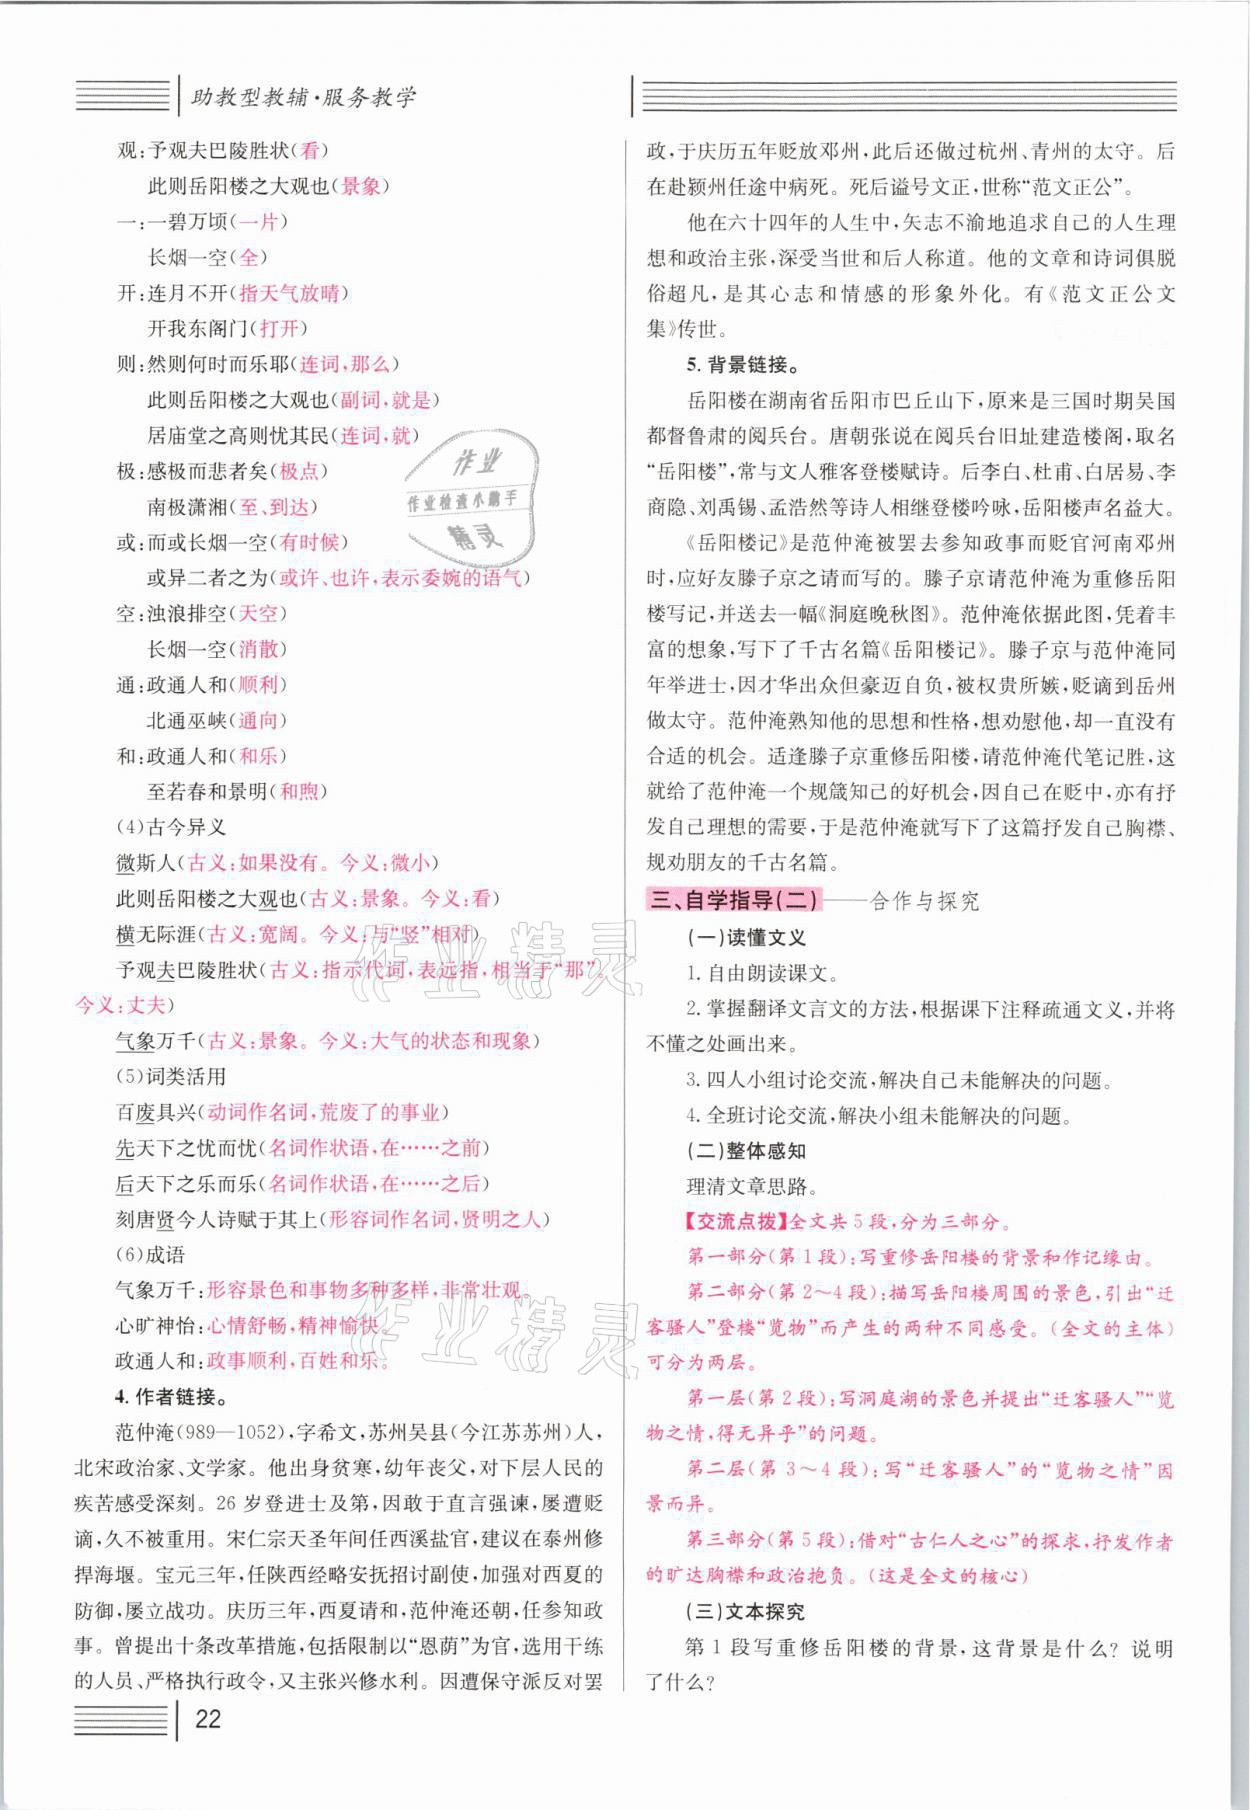 助教型教辅·服务教学
观:予观夫巴陵胜状(看)
此则岳阳楼之大观也(景象)
一:一碧万顷(一片)
长烟一空(全)
开:连月不开(指天气放晴)
开我东阁门(打开)
则:然则何时而乐耶(连词,那么)
此则岳阳楼之大观也(副词,就是)
居庙堂之高则忧其民(连词,就)
极:感极而悲者矣(极点)
南极潇湘(至、到达)
或:而或长烟一空(有时候)
或异二者之为(或许、也许,表示委婉的语气)
空:浊浪排空(天空)
长烟一空(消散)
通:政通人和(顺利)
北通巫峡(通向)
和:政通人和(和乐)
至若春和景明(和煦)
(4)古今异义
微斯人(古义:如果没有。今义:微小)
此则岳阳楼之大观也(古义:景象。今义:看)
横无际涯(古义:宽阔。今义:与“竖”相对)
予观夫巴陵胜状(古义:指示代词,表远指,相当于“那”。
今义:丈夫)
气象万千(古义:景象。今义:大气的状态和现象)
(5)词类活用
百废具兴(动词作名词,荒废了的事业)
先天下之忧而忧(名词作状语,在……之前)
后天下之乐而乐(名词作状语,在……之后)
刻唐贤今人诗赋于其上(形容词作名词,贤明之人)
(6)成语
气象万千:形容景色和事物多种多样,非常壮观。
心旷神怡:心情舒畅,精神愉快。
政通人和:政事顺利,百姓和乐。
4. 作者链接。
范仲淹(989—1052),字希文,苏州吴县(今江苏苏州)人,
北宋政治家、文学家。他出身贫寒,幼年丧父,对下层人民的
疾苦感受深刻。26 岁登进士及第,因敢于直言强谏,屡遭贬
谪,久不被重用。宋仁宗天圣年间任西溪盐官,建议在泰州修
捍海堰。宝元三年,任陕西经略安抚招讨副使,加强对西夏的
防御,屡立战功。庆历三年,西夏请和,范仲淹还朝,任参知政
事。曾提出十条改革措施,包括限制以“恩荫”为官,选用干练
的人员、严格执行政令,又主张兴修水利。因遭保守派反对罢
22
政,于庆历五年贬放邓州,此后还做过杭州、青州的太守。后
在赴颍州任途中病死。死后谥号文正,世称“范文正公”。
他在六十四年的人生中,矢志不渝地追求自己的人生理
想和政治主张,深受当世和后人称道。他的文章和诗词俱脱
俗超凡,是其心志和情感的形象外化。有《范文正公文
集》传世。
5. 背景链接。
岳阳楼在湖南省岳阳市巴丘山下,原来是三国时期吴国
都督鲁肃的阅兵台。唐朝张说在阅兵台旧址建造楼阁,取名
“岳阳楼”,常与文人雅客登楼赋诗。后李白、杜甫、白居易、李
商隐、刘禹锡、孟浩然等诗人相继登楼吟咏,岳阳楼声名益大。
《岳阳楼记》是范仲淹被罢去参知政事而贬官河南邓州
时,应好友滕子京之请而写的。滕子京请范仲淹为重修岳阳
楼写记,并送去一幅《洞庭晚秋图》。范仲淹依据此图,凭着丰
富的想象,写下了千古名篇《岳阳楼记》。滕子京与范仲淹同
年举进士,因才华出众但豪迈自负,被权贵所嫉,贬谪到岳州
做太守。范仲淹熟知他的思想和性格,想劝慰他,却一直没有
合适的机会。适逢滕子京重修岳阳楼,请范仲淹代笔记胜,这
就给了范仲淹一个规箴知己的好机会,因自己在贬中,亦有抒
发自己理想的需要,于是范仲淹就写下了这篇抒发自己胸襟、
规劝朋友的千古名篇。
三、自学指导(二)——合作与探究
(一)读懂文义
1. 自由朗读课文。
2. 掌握翻译文言文的方法,根据课下注释疏通文义,并将
不懂之处画出来。
3. 四人小组讨论交流,解决自己未能解决的问题。
4. 全班讨论交流,解决小组未能解决的问题。
(二)整体感知
理清文章思路。
【交流点拨】全文共 5 段,分为三部分。
第一部分(第 1 段):写重修岳阳楼的背景和作记缘由。
第二部分(第 2～4 段):描写岳阳楼周围的景色,引出“迁
客骚人”登楼“览物”而产生的两种不同感受。(全文的主体)
可分为两层。
第一层(第 2 段):写洞庭湖的景色并提出“迁客骚人”“览
物之情,得无异乎”的问题。
第二层(第 3～4 段):写“迁客骚人”的“览物之情”因
景而异。
第三部分(第 5 段):借对“古仁人之心”的探求,抒发作者
的旷达胸襟和政治抱负。(这是全文的核心)
(三)文本探究
第 1 段写重修岳阳楼的背景,这背景是什么? 说明
了什么?
作业
作业检查小助手
精灵
作业精灵
作业精灵